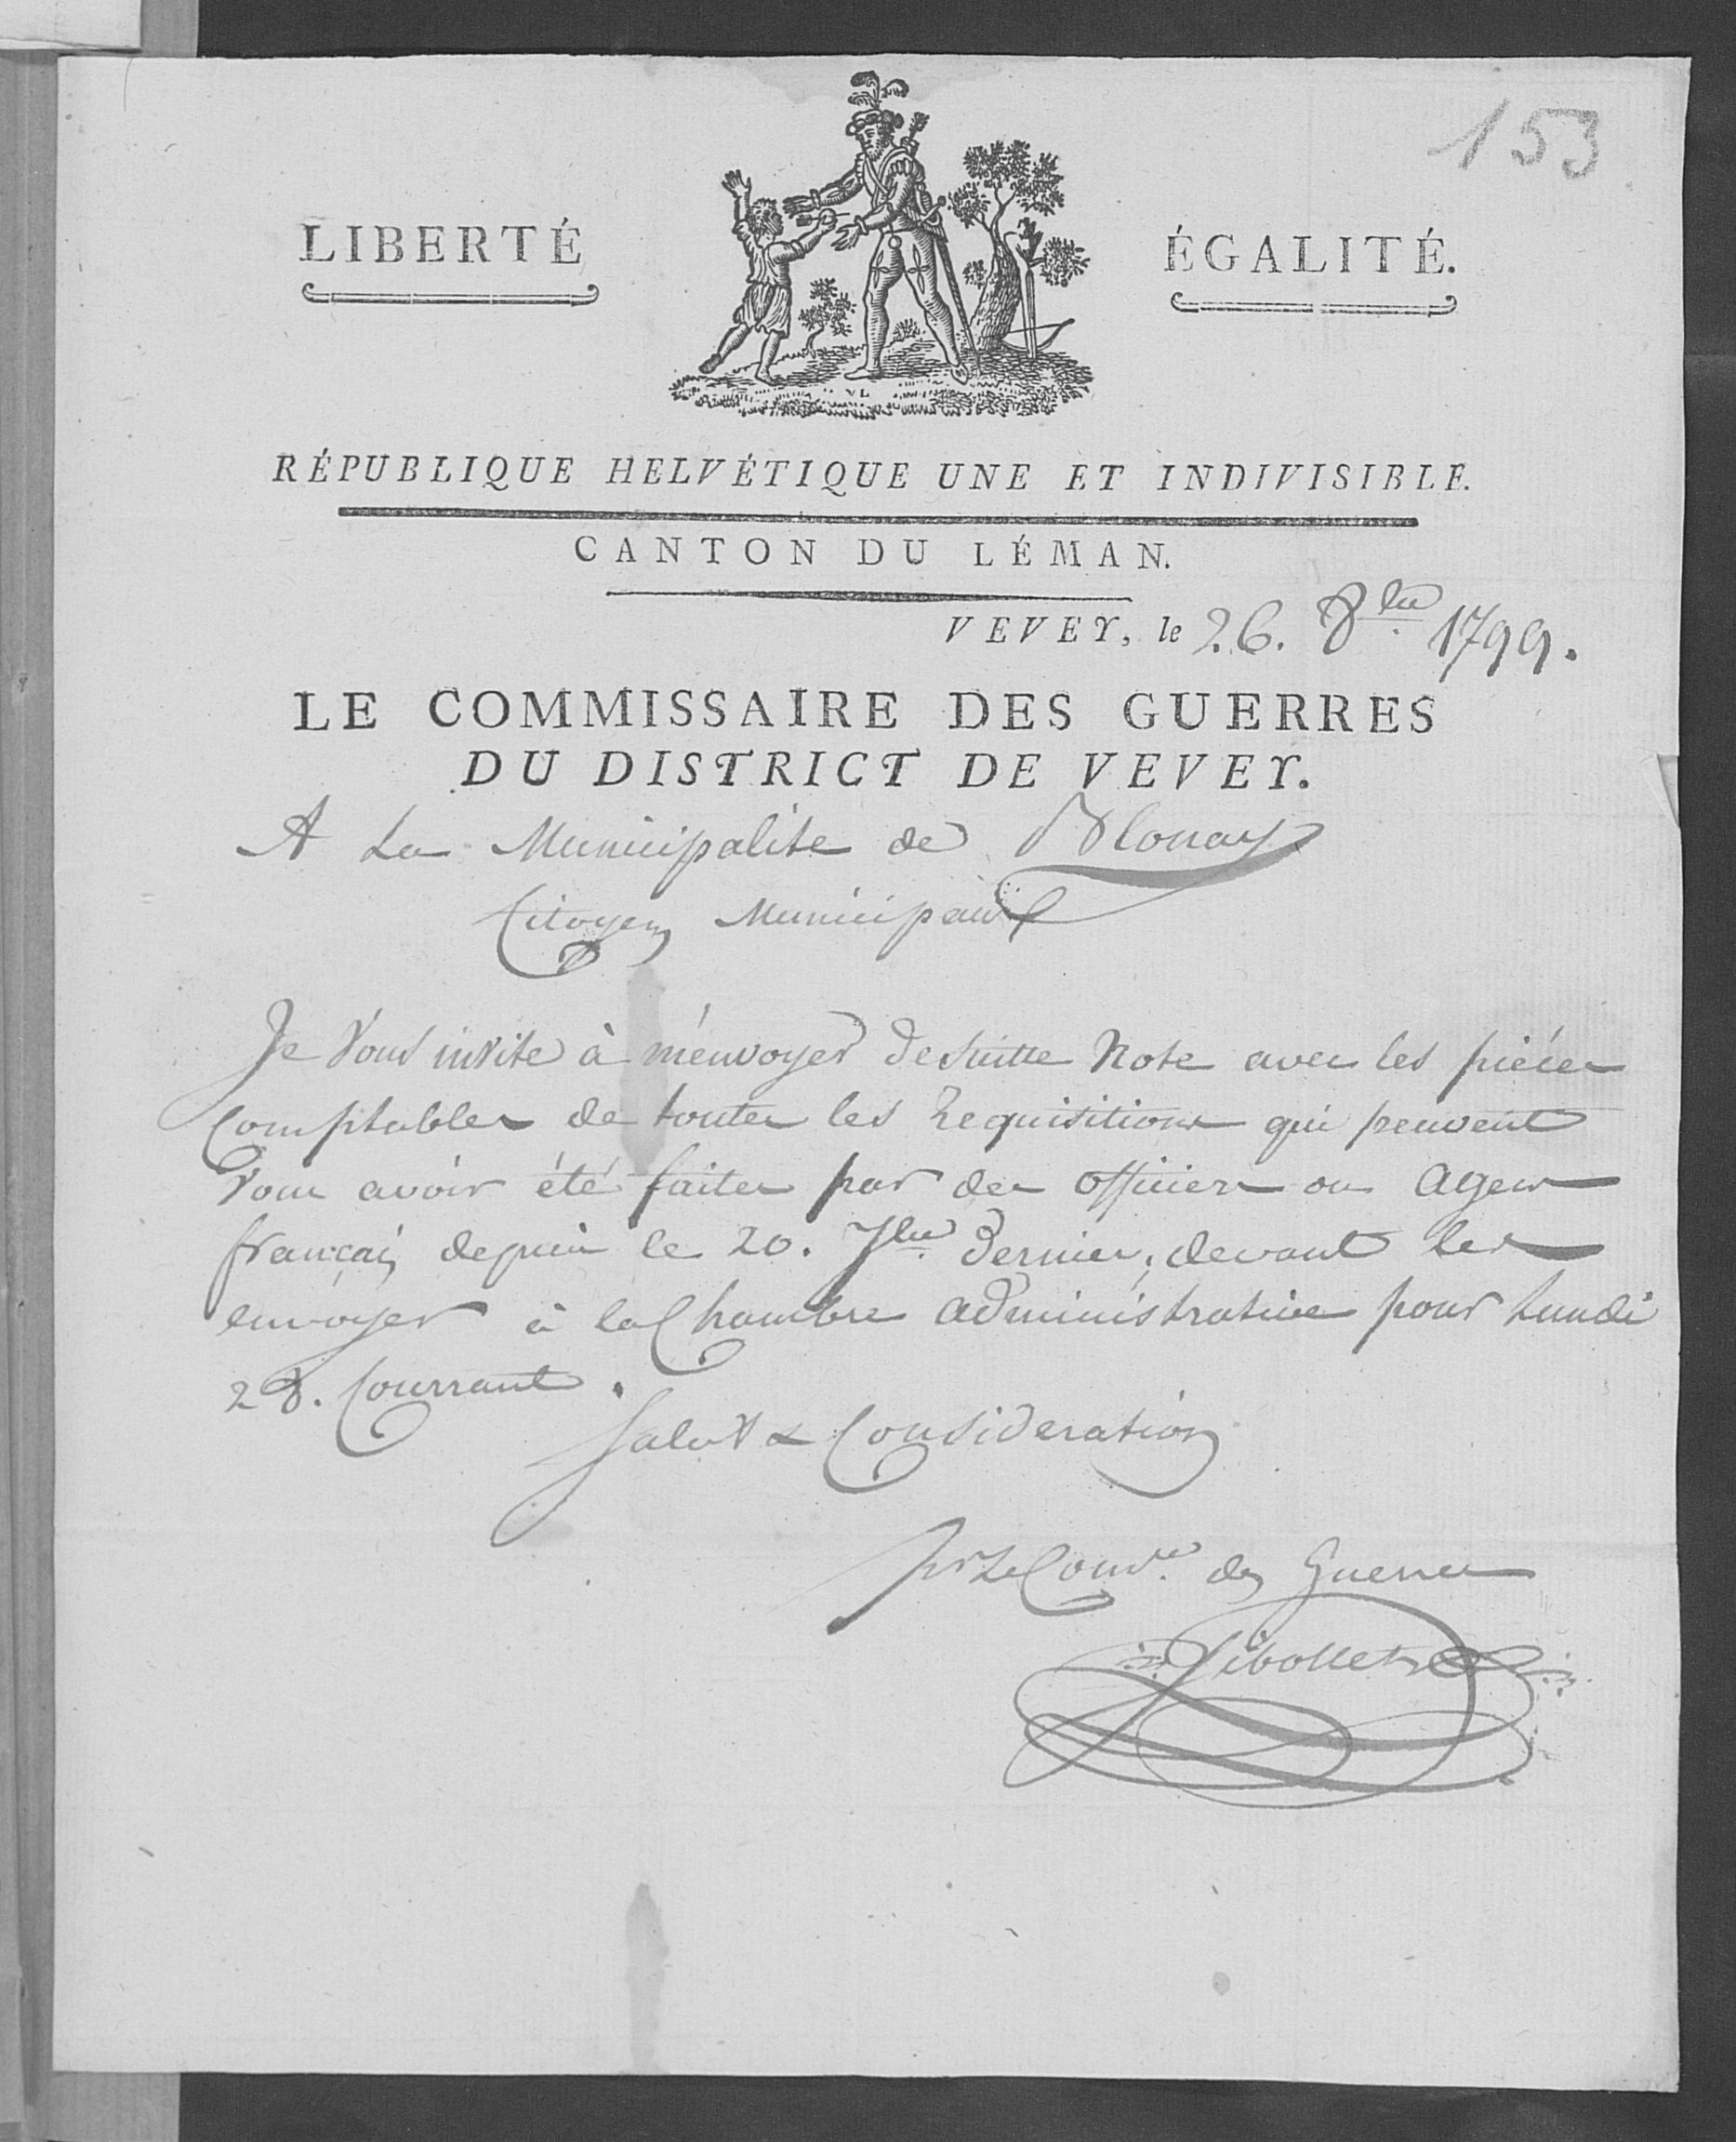 153
LIBERTÉ
ÉGALITÉ.
VL
RÉPUBLIQUE HELVÉTIQUE UNE ET INDIVISIBLE.
CANTON DU LÉMAN.
VEVEY, le 26. 8bre 1799.
LE COMMISSAIRE DES GUERRES
DU DISTRICT DE VEVEY.
A La Municipalité de Blonay
Citoyens Municipaux
Je Vous invite à m'envoyer desuitte Note avec les piéces
Comptables de toutes les Requisitions qui peuvent
Vous avoir été faites par des officiers ou Agens
français depuis le 20. 7bre dernier, devant les
envoyer à la Chambre administrative pour Lundi
28. Courrant.
Salut & Consideration
pr Le Comre des Guerres